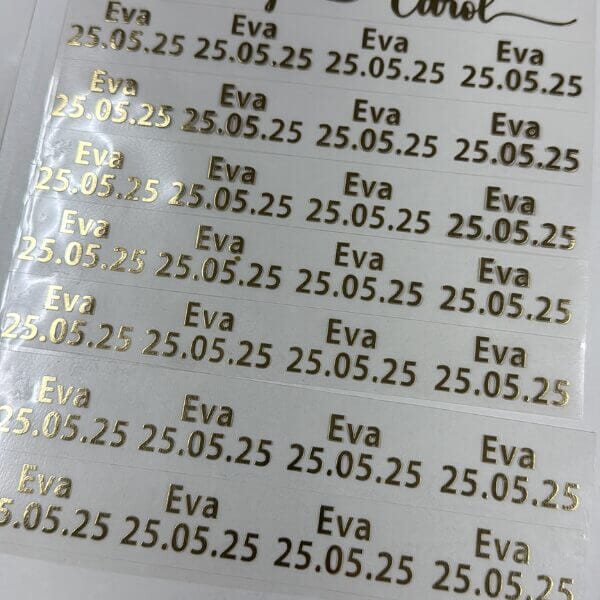 Carol
Eva Eva Eva Eva
25.05.25 25.05.25 25.05.25 25.05.25
Eva Eva Eva Eva
25.05.25 25.05.25 25.05.25 25.05.25
Eva Eva Eva Eva
25.05.25 25.05.25 25.05.25 25.05.25
Eva Eva Eva Eva
25.05.25 25.05.25 25.05.25 25.05.25
Eva Eva Eva Eva
25.05.25 25.05.25 25.05.25 25.05.25
Eva Eva Eva Eva
25.05.25 25.05.25 25.05.25 25.05.25
Eva Eva Eva Eva
5.05.25 25.05.25 25.05.25 25.05.25